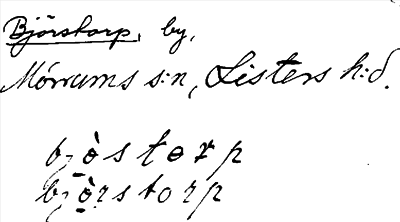 Björstorp, by,
Mörrums s:n, Listers h:d.
bjòstorp
bjòrstorp